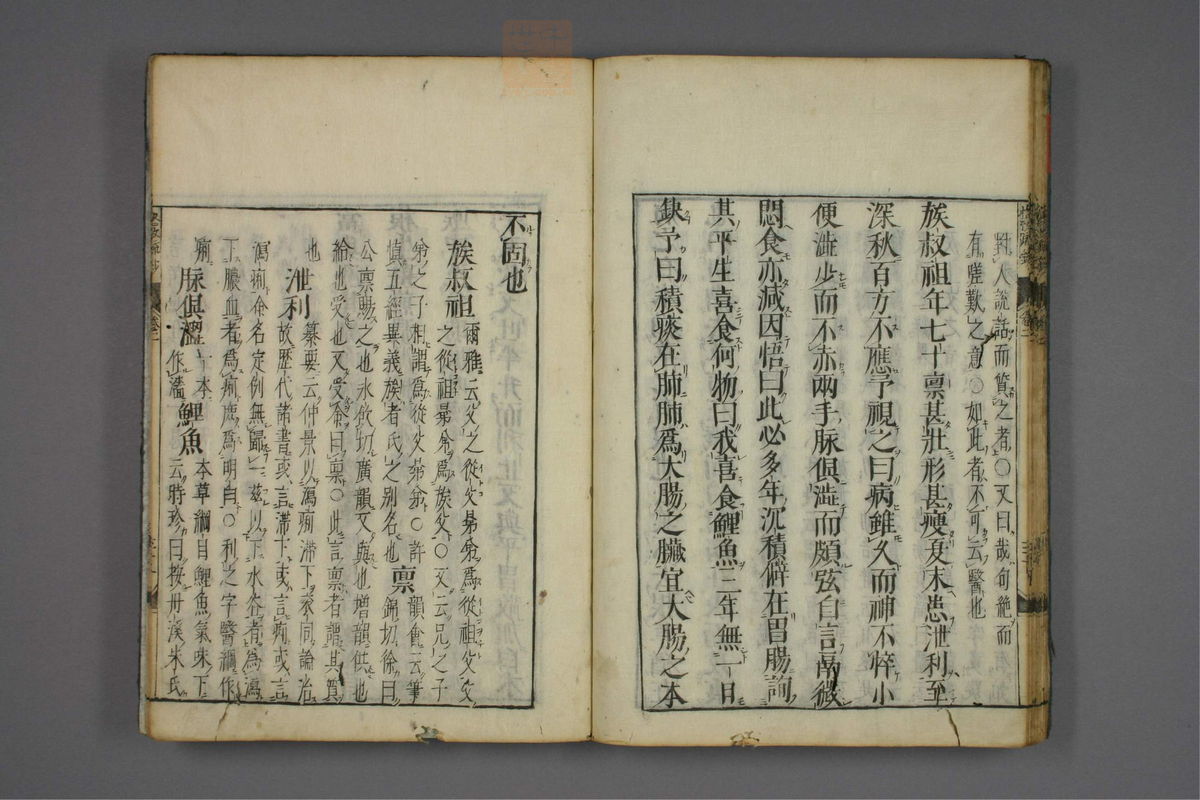 對人說話而質之者○又曰哉句絶而
有嗟歎之意○如此者不可云醫也
族叔祖年七十禀甚壯形甚瘦夏末患泄利至
深秋百方不應予視之曰病雖久而神不悴小
便澁少而不赤兩手脉俱澁而頗弦自言鬲微
悶食亦減因悟曰此必多年沉積僻在胃腸詢
其平生喜食何物曰我喜食鯉魚三年無一日
缺予曰積痰在肺肺爲大腸之臟宜大腸之本
不固也
族叔祖 爾雅云父之從父晜弟爲從祖父父
之從祖晜弟爲族父○又云兄之子
弟之子相謂爲從父晜弟○許
慎五經異義族者氏之别名也 禀 韻會云筆錦切徐曰
公禀賜之也水飲切廣韻又與也增韻供也
給也受也又受命曰禀○此言禀者謂其質
也 泄利 纂要云仲景以瀉痢滯下衮同論治
故歷代諸書或言滯下或言痢或言
瀉痢命名定例無歸一茲以下水谷者爲瀉
下膿血者爲痢庶爲明白○利之字醫綱作
痢 脉俱澀 一本作濇 鯉魚 本草綱目鯉魚氣味下
云時珍曰按丹溪朱氏